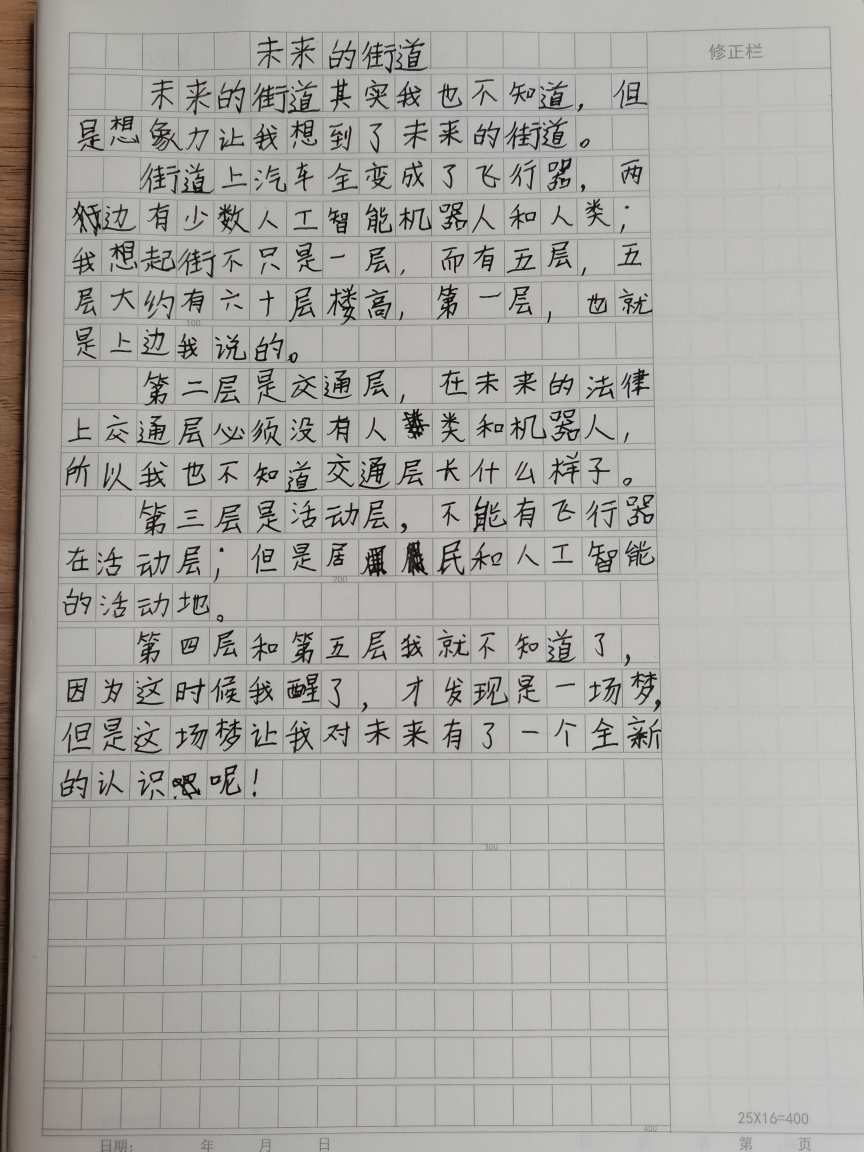 未来的街道
修正栏
未来的街道其实我也不知道，但
是想象力让我想到了未来的街道。
街道上汽车全变成了飞行器，两
边有少数人工智能机器人和人类；
我想起街不只是一层，而有五层，五
层大约有六十层楼高，第一层，也就
100
是上边我说的。
第二层是交通层，在未来的法律
上交通层必须没有人类和机器人，
所以我也不知道交通层长什么样子。
第三层是活动层，不能有飞行器
在活动层；但是居民和人工智能
200
的活动地。
第四层和第五层我就不知道了，
因为这时候我醒了，才发现是一场梦，
但是这场梦让我对未来有了一个全新
的认识呢！
300
25X16=400
400
日期： 年 月 日
第 页